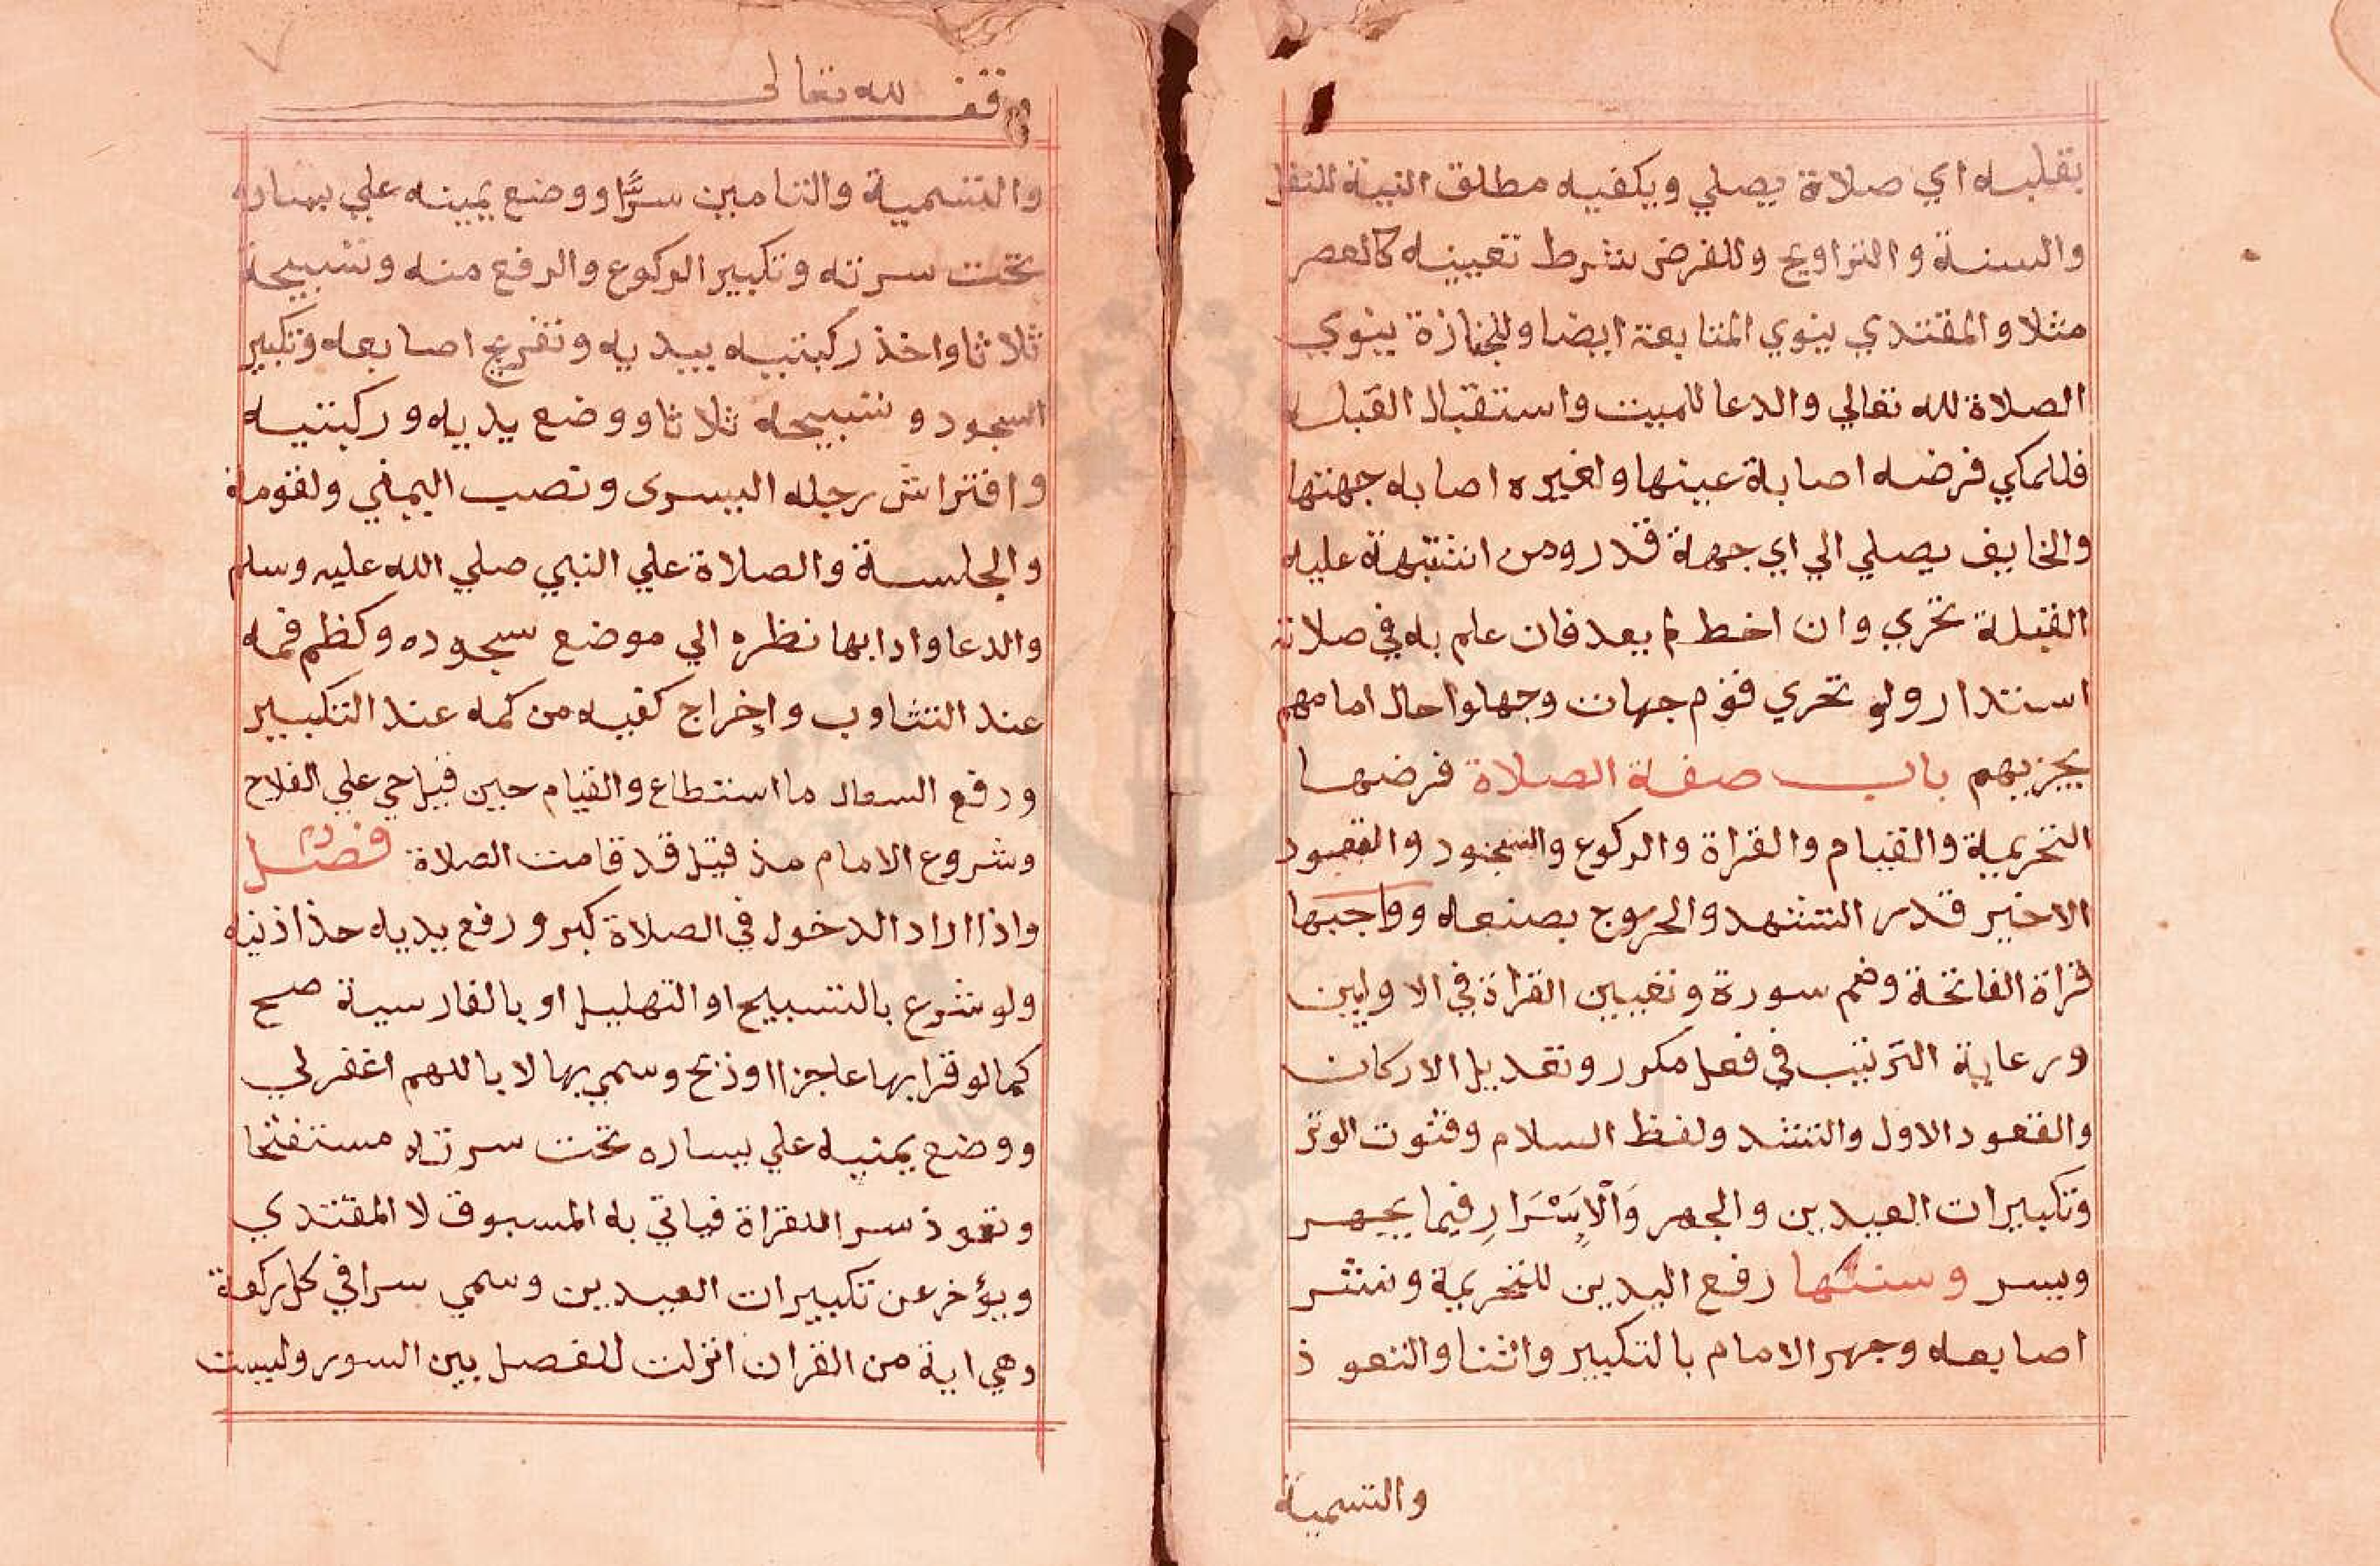 بقلبه اي صلاة يصلي ويكفيه مطلق النية للنفل
والسنة والتراويح وللفرض شرط تعيينه كالعصر
مثلا والمقتدي ينوي المتابعة ايضا وللجنازة ينوي
الصلاة لله تعالي والدعا للميت واستقبال القبله
فللمكي فرضه اصابة عينها ولغيره اصابه جهتها
والخايف يصلي الي اي جهة قدر ومن اشتبهة عليه
القبلة تحري وان اخطا لم يعد فان علم به في صلاته
استدار ولو تحري قوم جهات وجهلوا حال امامهم
يجزيهم باب صفة الصلاة فرضها
التحريمة والقيام والقراة والركوع والسجود والقعود
الاخير قدر التشهد والخروج بصنعه وواجبها
قراة الفاتحة وضم سورة وتعيين القراة في الاوليين
ورعاية الترتيب في فعل مكرر وتعديل الاركان
والقعود الاول والتشد ولفظ السلام وقنوت الوتر
وتكبيرات العيدين والجهر وَالْاِسْرَارِ فيما يجهر
ويسر وسنتها رفع اليدين للتحريمة ونشر
اصابعه وجهر الامام بالتكبير والثنا والتعوذ
والتسمية
وقف لله تعالى
والتسمية والتامين سرًّا ووضع يمينه علي يساره
تحت سرته وتكبير الركوع والرفع منه وتسبيحة
ثلاثا واخذ ركبتيه بيديه وتفريج اصابعه وتكبير
السجود وتسبيحه ثلاثا ووضع يديه وركبتيه
وافتراش رجله اليسرى ونصب اليمني ولقومة
والجلسة والصلاة علي النبي صلي الله عليه وسلم
والدعا وادابها نظره الي موضع سجوده وكظم فمه
عند التثاوب واخراج كفيه من كمه عند التكبير
ودفع السعال ما استطاع والقيام حين قيل حي علي الفلاح
وشروع الامام مذ قيل قد قامت الصلاة فصل
واذا اراد الدخول في الصلاة كبر ورفع يديه حذا اذنيه
ولو شرع بالتسبيح او التهليل او بالفارسية صح
كما لو قرا بها عاجزا او ذبح وسمي بها لا باللهم اغفر لي
ووضع يمنيه علي يساره تحت سرته مستفتحا
وتعوذ سرا للقراة فياتي به المسبوق لا المقتدي
ويؤخر عن تكبيرات العيدين وسمي سرا في كل ركعة
وهي اية من القران انزلت للفصل بين السور وليست